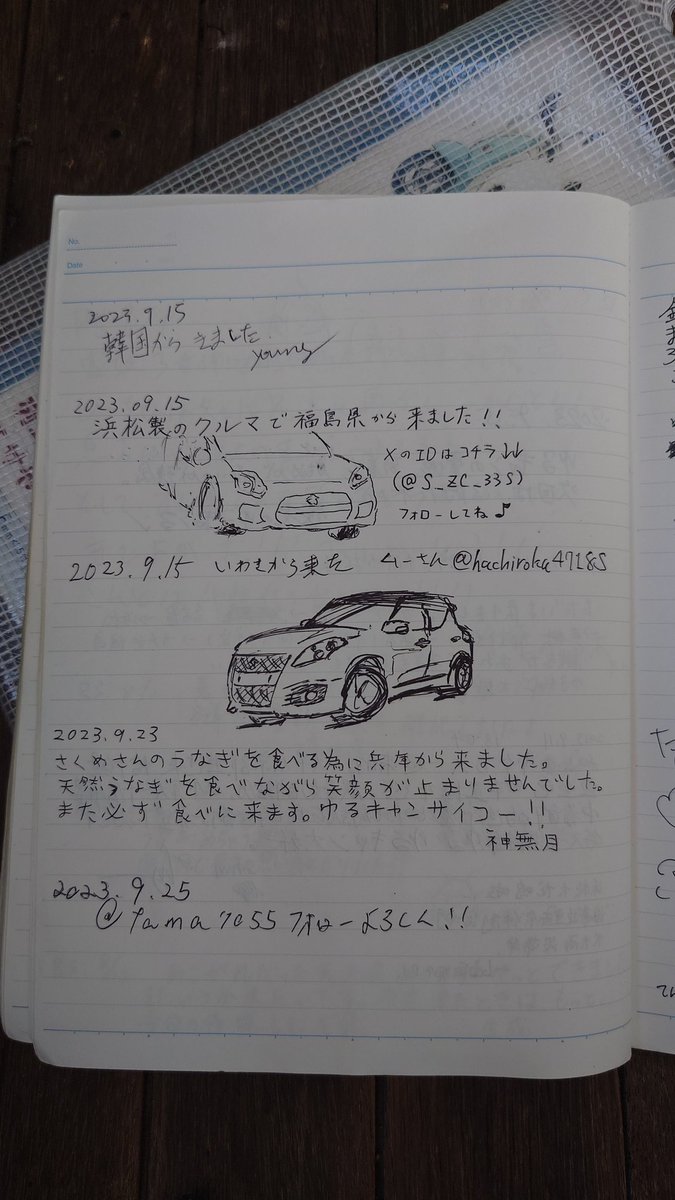 No.
Date
2023.9.15
韓国から きました
young
2023.09.15
浜松製のクルマで福島県から来ました!!
XのIDはコチラ↓↓
(@S_ZC_33S)
フォローしてね♪
2023.9.15 いわきから来た ムーさん@hachiroka4718S
2023.9.23
さくめさんのうなぎを食べる為に兵庫から来ました。
天然うなぎを食べながら笑顔が止まりませんでした。
また必ず食べに来ます。ゆるキャンサイコー!!
神無月
2023.9.25
@tama7055 フォローよろしく!!